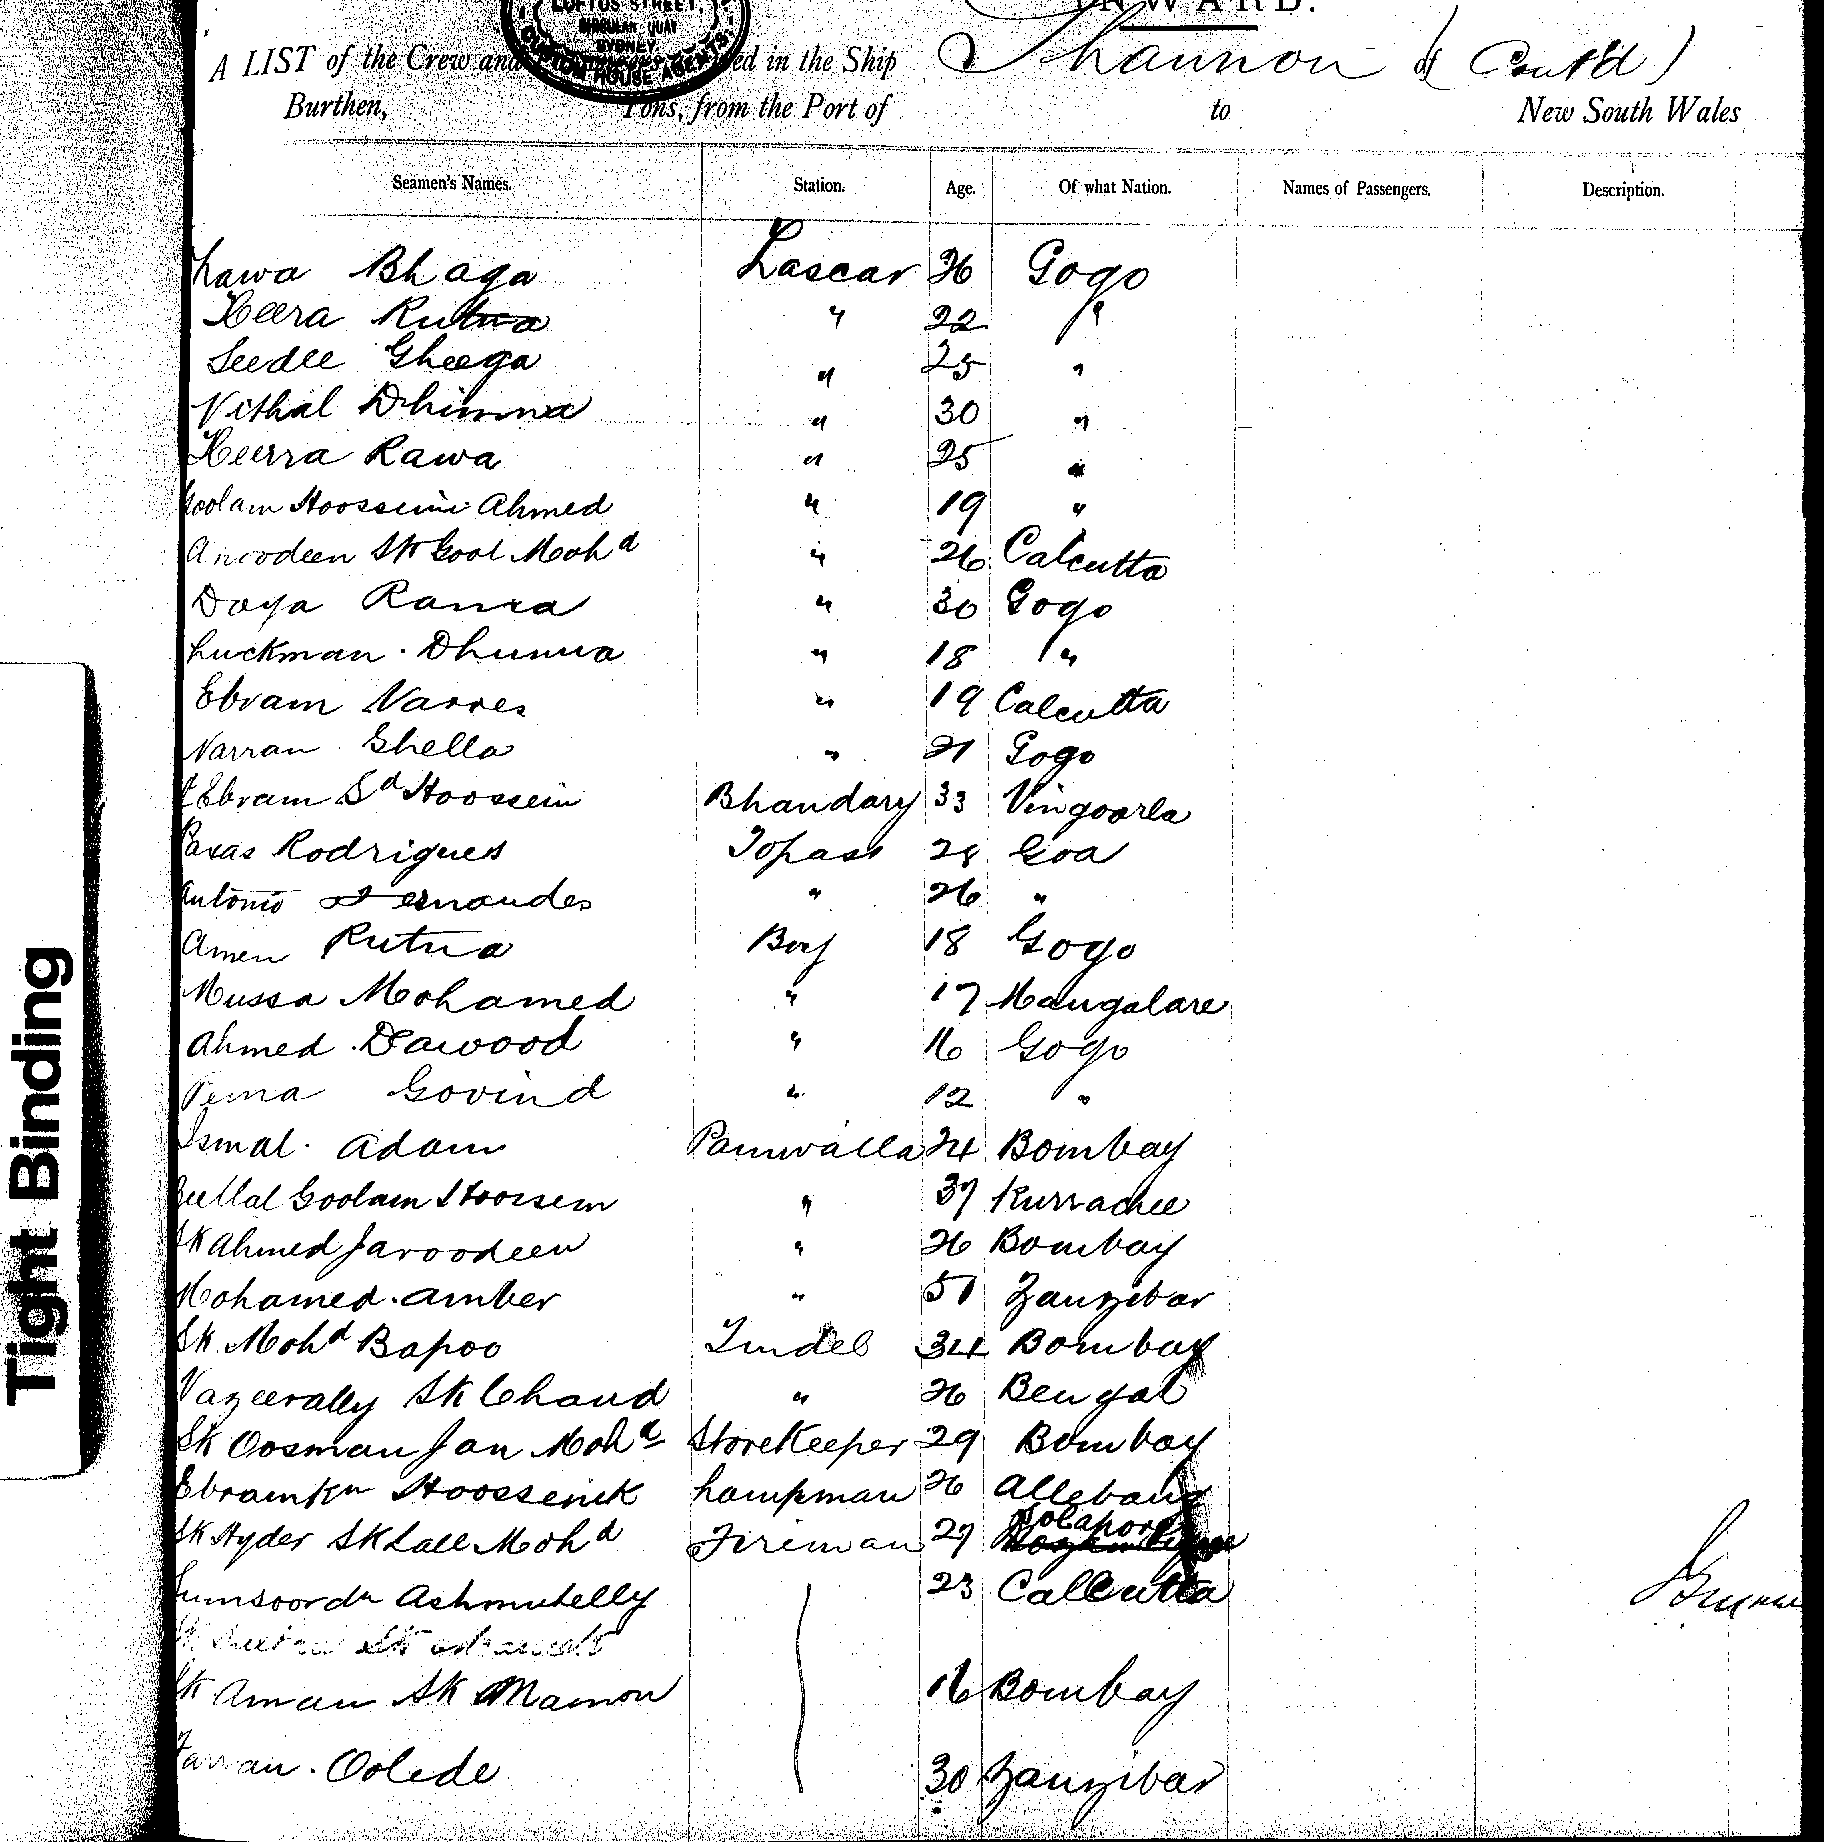 INWARD.
LOFTUS STREET,
CIRCULAR QUAY
SYDNEY
CUSTOM HOUSE AGENTS
A LIST of the Crew and in the Ship Shannon (Cont'd)
Burthen, Tons, from the Port of to New South Wales
Seamen's Names. Station. Age. Of what Nation. Names of Passengers. Description.
Lawa Bhaga Lascar 26 Gogo
Heera Rutna " 22 "
Seedee Gheega " 25 "
Vithal Dhimma " 30 "
Heerra Rawa " 25 "
Goolam Hoossein Ahmed " 19 "
Sk Gool Mohd " 26 Calcutta
Daya Rama " 30 Gogo
Luckman Dhunna " 18 "
Ebram Narres " 19 Calcutta
Narran Ghella " 21 Gogo
Ebram Sd Hoossein Bhandary 33 Vingoorla
Rodrigues Topass 28 Goa
Antonio Fernandes " 26 "
Amen Rutna Boy 18 Gogo
Mussa Mohamed " 17 Mangalare
Ahmed Dawood " 16 Gogo
Pema Govind " 12 "
Ismal Adam Paniwalla 24 Bombay
Goolam Hoossein " 37 Kurrachee
Sk Ahmed Jaroodeen " 26 Bombay
Mohamed Amber " 51 Zanzibar
Sk Mohd Bapoo Tindel 34 Bombay
Vazeerally Sk Chand " 26 Bengal
Sk Oosman Jan Mohd Storekeeper 29 Bombay
Ebramkn Lampman 26
Sk Hyder Sk Lall Mohd Fireman 27 Solapore
23 Calcutta
Sk Aman Sk Mamon 16 Bombay
Oolede 30 Zanzibar
Tight Binding